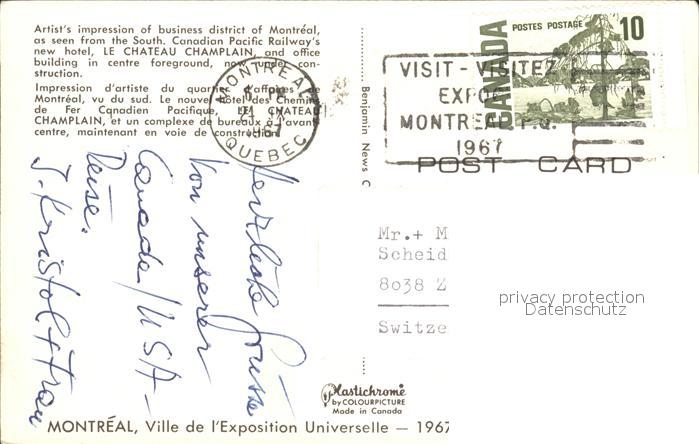 Artist's impression of business district of Montréal,
as seen from the South. Canadian Pacific Railway's
new hotel, LE CHATEAU CHAMPLAIN, and office
building in centre foreground, now under con-
struction.
Impression d'artiste du quartier d'affaires de
Montréal, vu du sud. Le nouvel hôtel des Chemins
de Fer Canadien Pacifique, LE CHATEAU
CHAMPLAIN, et un complexe de bureaux à l'avant
centre, maintenant en voie de construction.
MONTREAL
1967
QUEBEC
CANADA
POSTES POSTAGE
10
VISIT - VISITEZ
EXPO
MONTREAL P.Q.
1967
POST CARD
Benjamin News C
Herzliche Grüsse
von unserer
Canada/USA-
Reise.
J. + Frau
Mr.+ M
Scheid
8038 Z
Switze
privacy protection
Datenschutz
Plastichrome
by COLOURPICTURE
Made in Canada
MONTRÉAL, Ville de l'Exposition Universelle — 1967